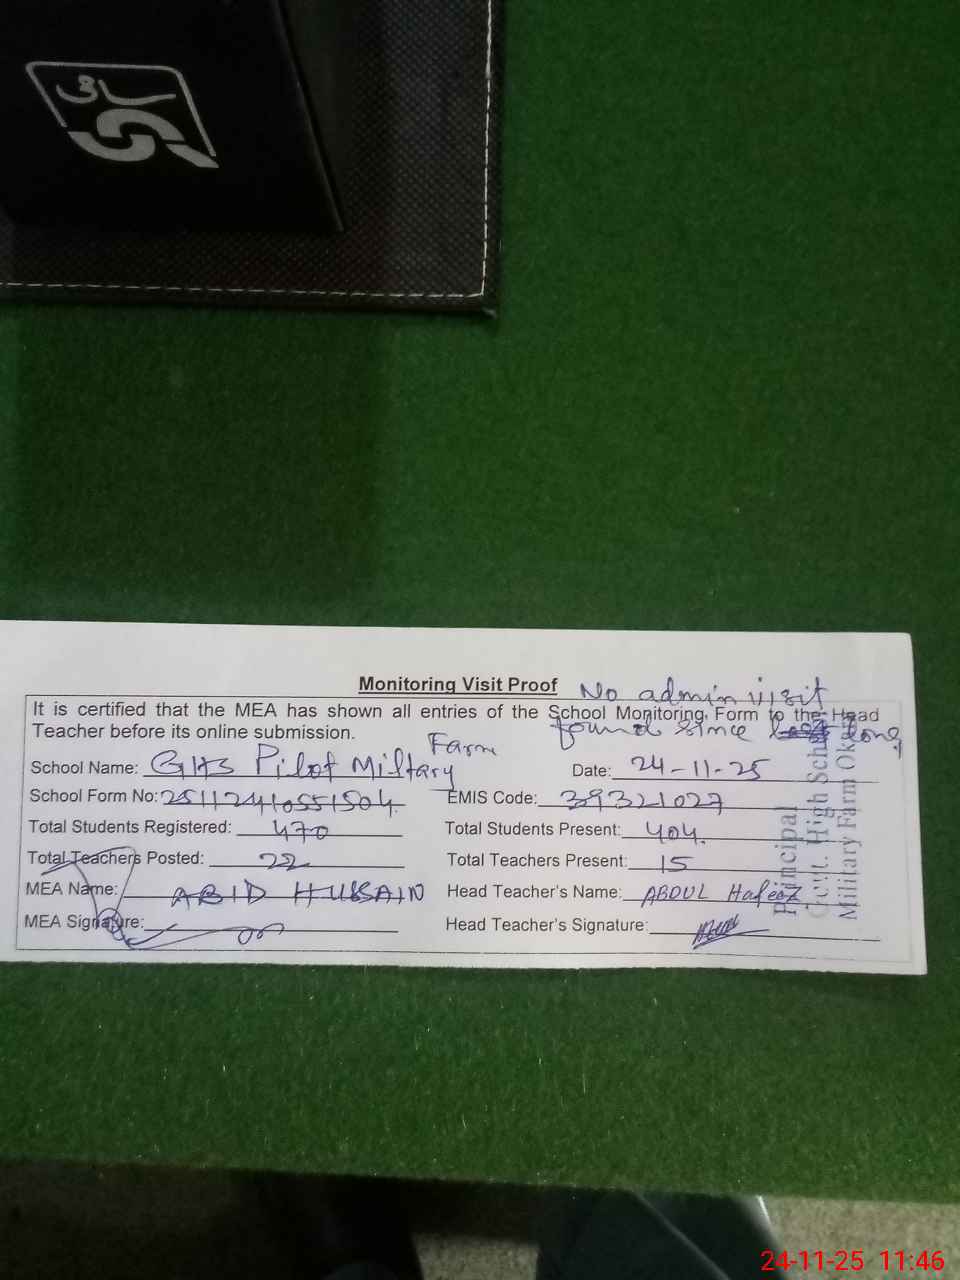 ساقی
Monitoring Visit Proof
No admin visit
found since long
It is certified that the MEA has shown all entries of the School Monitoring Form to the Head
Teacher before its online submission.
School Name: GHS Pilot Miltary Farm
Date: 24-11-25
School Form No: 25112410551504
EMIS Code: 39321027
Total Students Registered: 470
Total Students Present: 404
Total Teachers Posted: 22
Total Teachers Present: 15
MEA Name: ABID HUSSAIN
Head Teacher's Name: ABDUL Hafeez
MEA Signature:
Head Teacher's Signature:
Principal
Govt. High School
Military Farm Okara
24-11-25 11:46